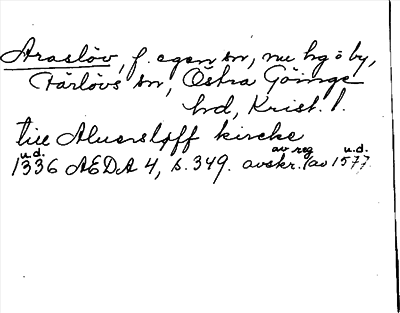 Araslöv, f. egen sn, nu hg o by,
Färlövs sn, Östra Göinge
hd, Krist. l.
till Aluerslöff kircke
u.d. av reg u.d.
1336 AEDA 4, s. 349. avskr. (av 1577.